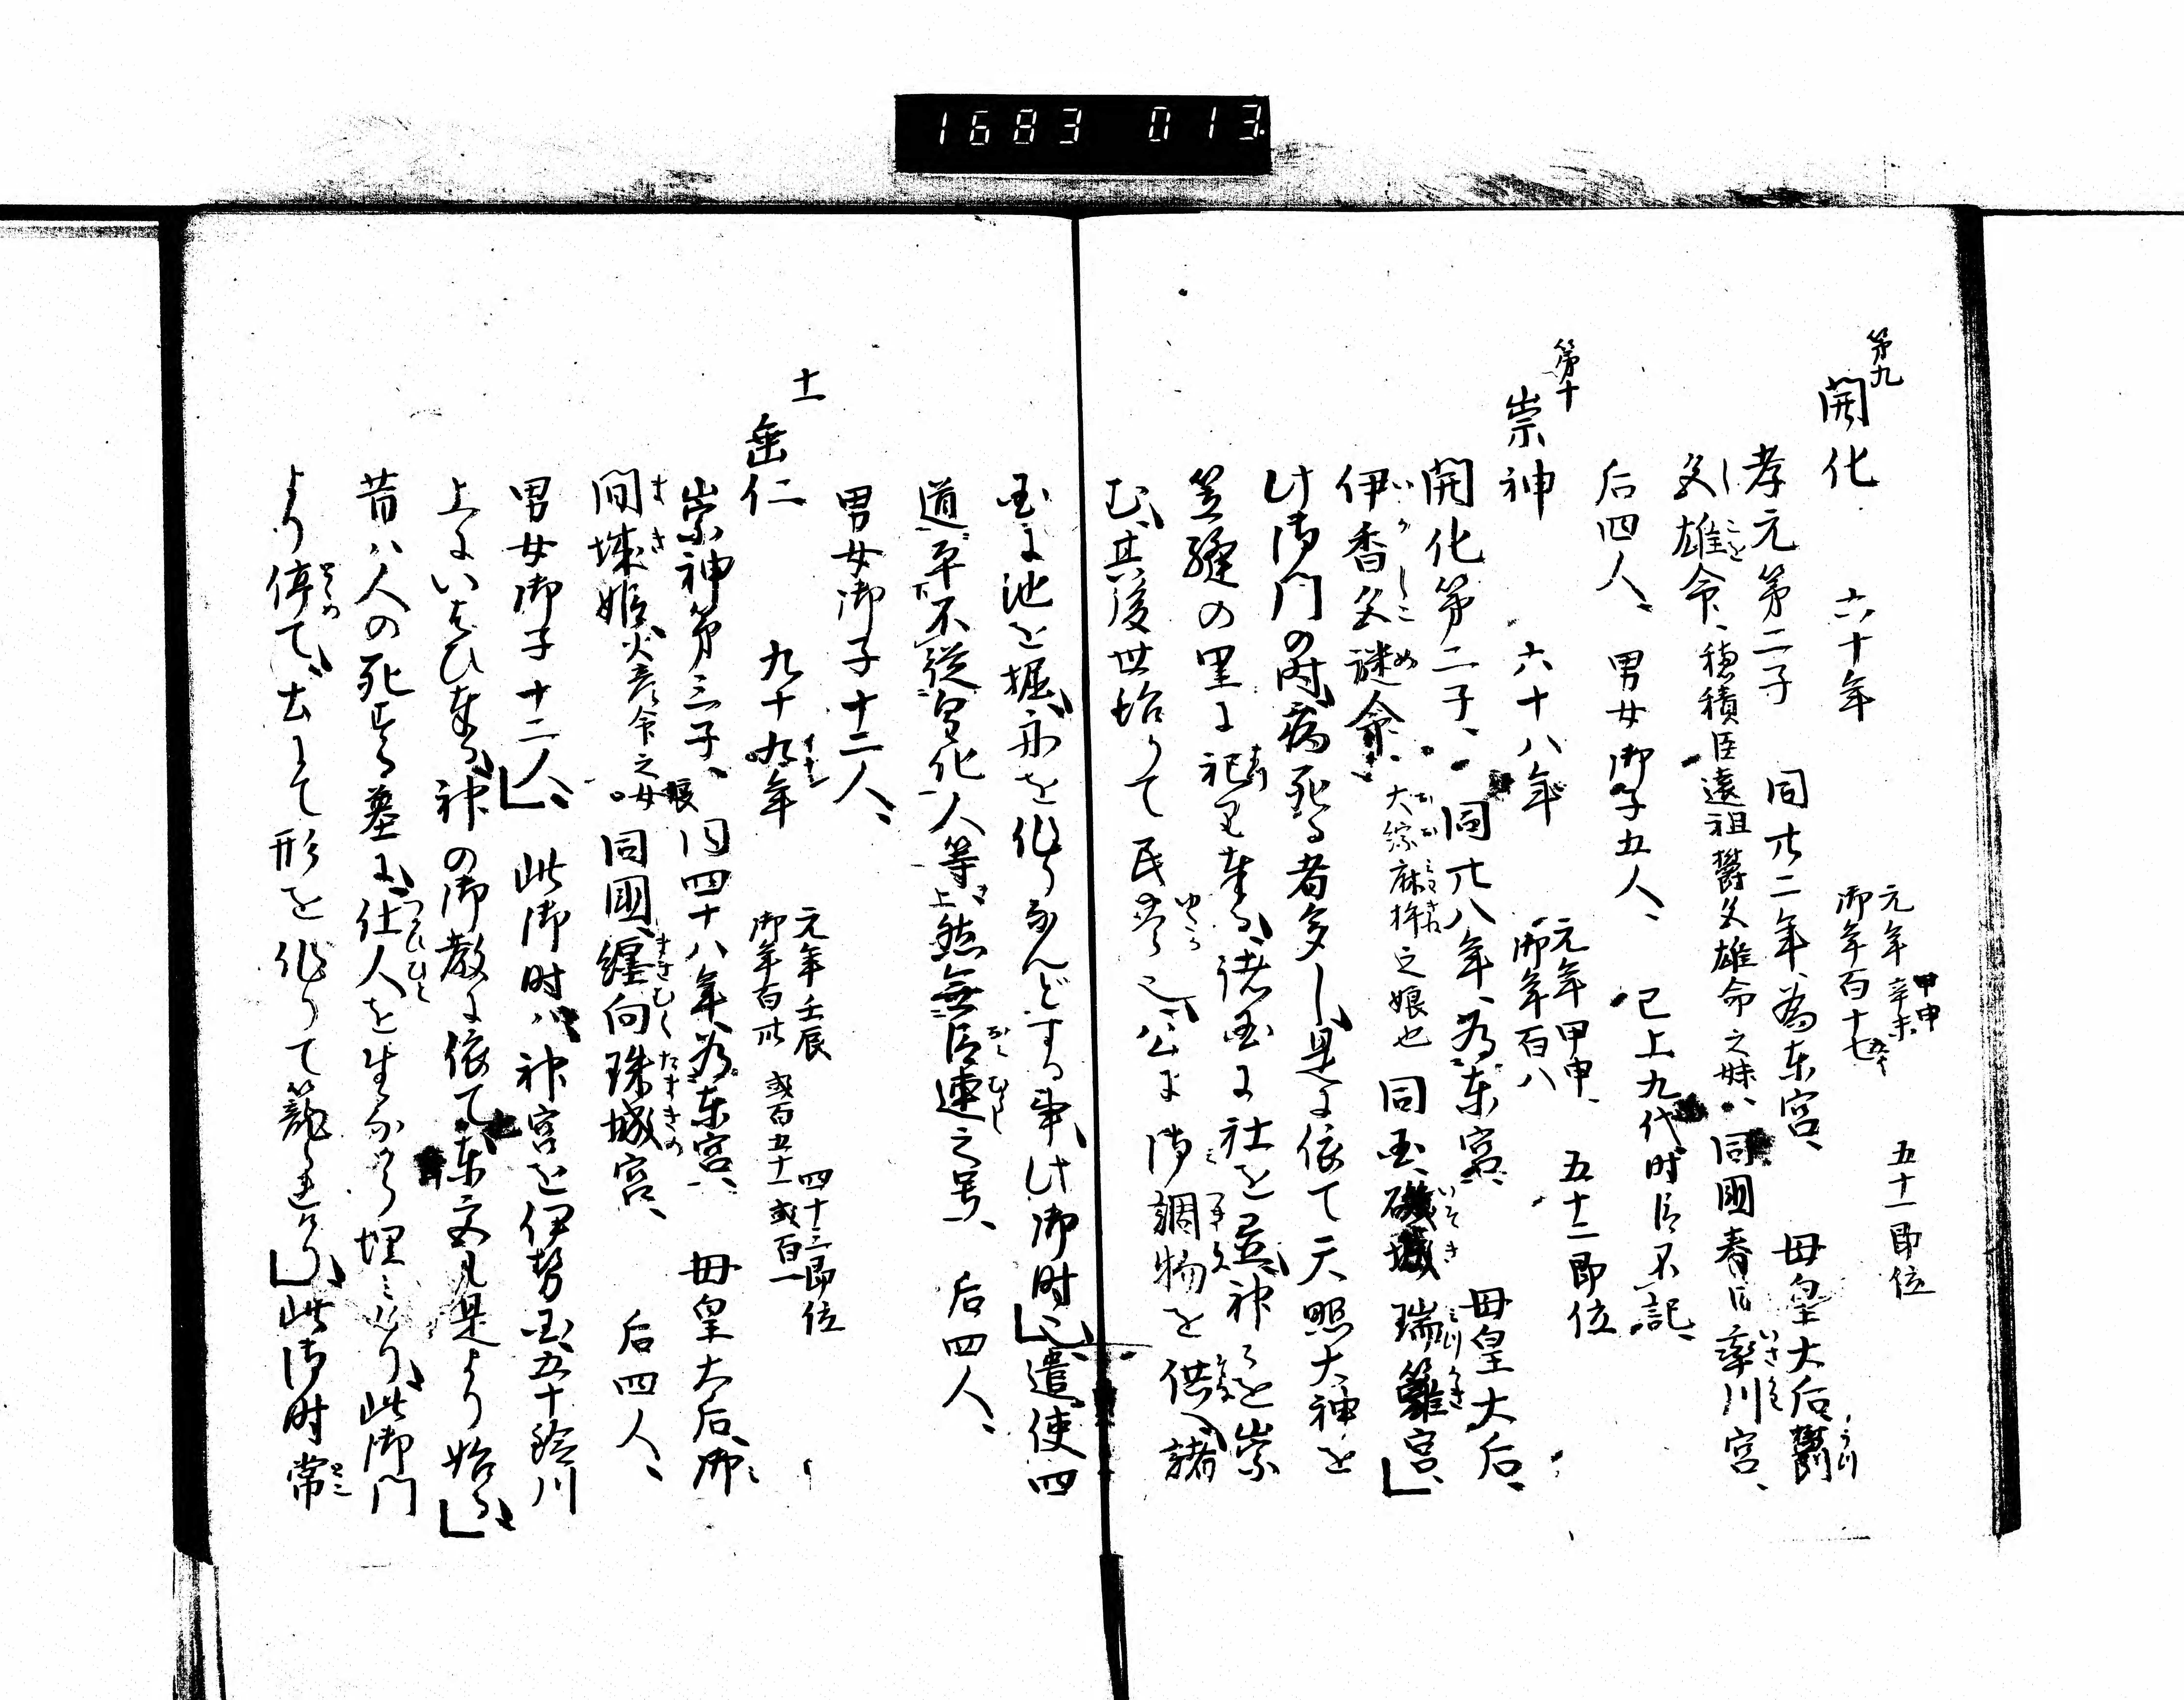 1683 013
第九
開化 六十年 元年辛未 甲申 五十一即位
御年百十七
孝元第二子 同廿二年、為东宮、 母皇大后、欝
色雄命、穂積臣遠祖欝色雄命之妹、同國春日率川宮、
后四人、 男女御子五人、 已上九代时臣不記、
第十
崇神 六十八年 元年甲申、 五十二即位
御年百八
開化第二子、同廿八年、为东宮、 母皇大后、
伊香色謎命、大綜麻杵之娘也 同国、磯城瑞籬宮、
此御门の时、病死る者多し、是に依て天照大神を
笠縫の里に祀り奉る、諸国に社を置、神々を崇
む、其後世治りて民
公に御調物を供へ、諸
国に池を掘、舟を作りなんどする事、此御时也、遣使四
道、平不従皇化人等上、然無臣連之号、 后四人、
男女御子十二人、
十一
垂仁 九十九年 元年壬辰 四十三即位
御年百卅 或百五十一 或百一
崇神第三子、同四十八年、为东宮、 母皇大后、御
間城姫、大彦命之女娘 同國、纏向珠城宮、 后四人、
男女御子十二人、 此御时、神宮を伊勢国、五十鈴川
上にいはひ奉る、神の御教に依て、
是より始る、
昔ハ人の死する墓に、仕人を生ながら埋みけり、此御门
より停て、土にて形を作りて籠
此御时常